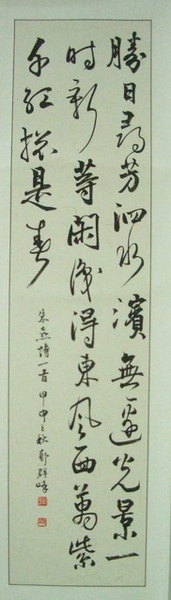 勝日尋芳泗水濱無邊光景一
时新等閑識得東風面萬紫
千紅總是春
朱熹詩一首甲申之秋